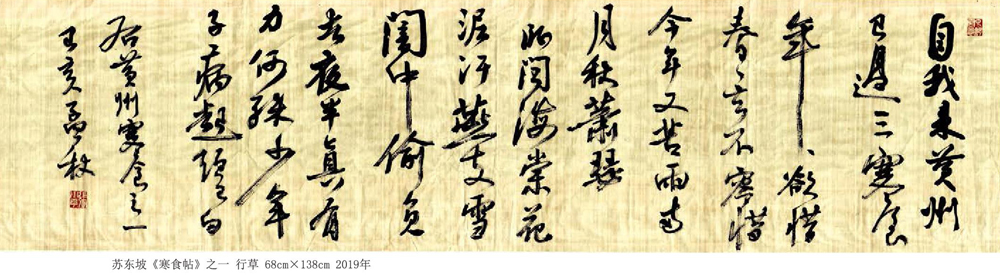 自我来黄州
已過三寒食
年々欲惜
春々去不容惜
今年又苦雨两
月秋蕭瑟
卧聞海棠花
泥汙燕支雪
闇中偷負
去夜半真有
力何殊少年
子病起頭已白
右黄州寒食之一
己亥孟秋
苏东坡《寒食帖》之一 行草 68cm×138cm 2019年